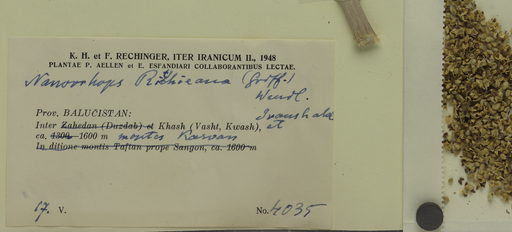 K. H. et F. RECHINGER, ITER IRANICUM II., 1948
PLANTAE P. AELLEN et E. ESFANDIARI COLLABORANTIBUS LECTAE.
Nannorrhops Ritchieana (Griff.)
Wendl.
Prov. BALUČISTAN:
Iranshahr
Inter Zahedan (Duzdab) et Khash (Vasht, Kwash), et
ca. 1300- 1600 m montes
In ditione montis Taftan prope Sangon, ca. 1600 m
17. V.
No. 4035